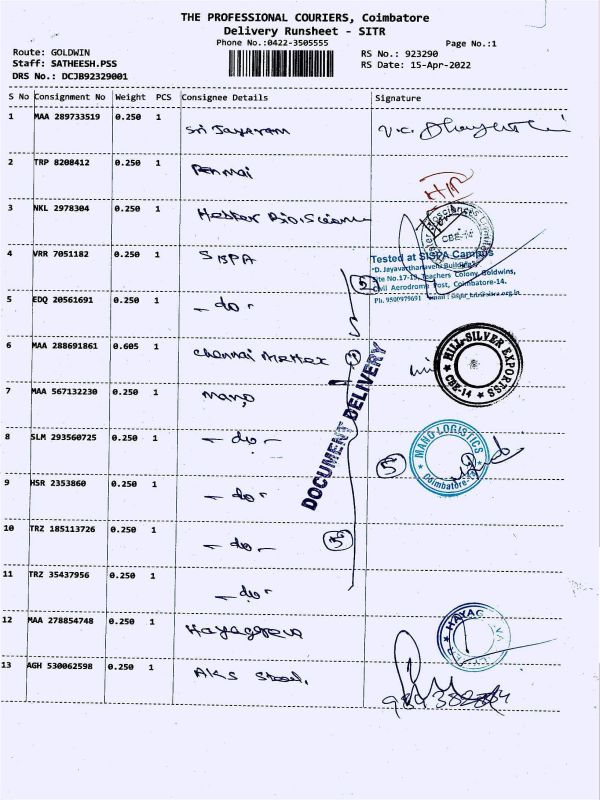 THE PROFESSIONAL COURIERS, Coimbatore
Delivery Runsheet - SITR
Phone No.:0422-3505555
Page No.:1
Route: GOLDWIN
RS No.: 923290
Staff: SATHEESH.PSS
RS Date: 15-Apr-2022
DRS No.: DCJB92329001
S No Consignment No Weight PCS Consignee Details Signature
1 MAA 289733519 0.250 1 Sri Jayaram
2 TRP 8208412 0.250 1 Penmai
3 NKL 2978304 0.250 1 Hester Bio.Science
4 VRR 7051182 0.250 1 SISPA
Tested at SISPA Campus
"D. Jayavarthanavelu Building",
Site No.17-19, Teachers Colony, Goldwins,
Civil Aerodrome Post, Coimbatore-14.
5 EDQ 20561691 0.250 1 - do -
6 MAA 288691861 0.605 1 Chennai Mettex
MILL-SILVER EXPORTSS
CBE-14
7 MAA 567132230 0.250 1 mano
DOCUMENT DELIVERY
8 SLM 293560725 0.250 1 - do -
5
MANO LOGISTICS
Coimbatore-14
9 HSR 2353860 0.250 1 - do -
10 TRZ 185113726 0.250 1 - do -
5
11 TRZ 35437956 0.250 1 - do -
12 MAA 278854748 0.250 1 Hayagreva
13 AGH 530062598 0.250 1 AKS Steel.